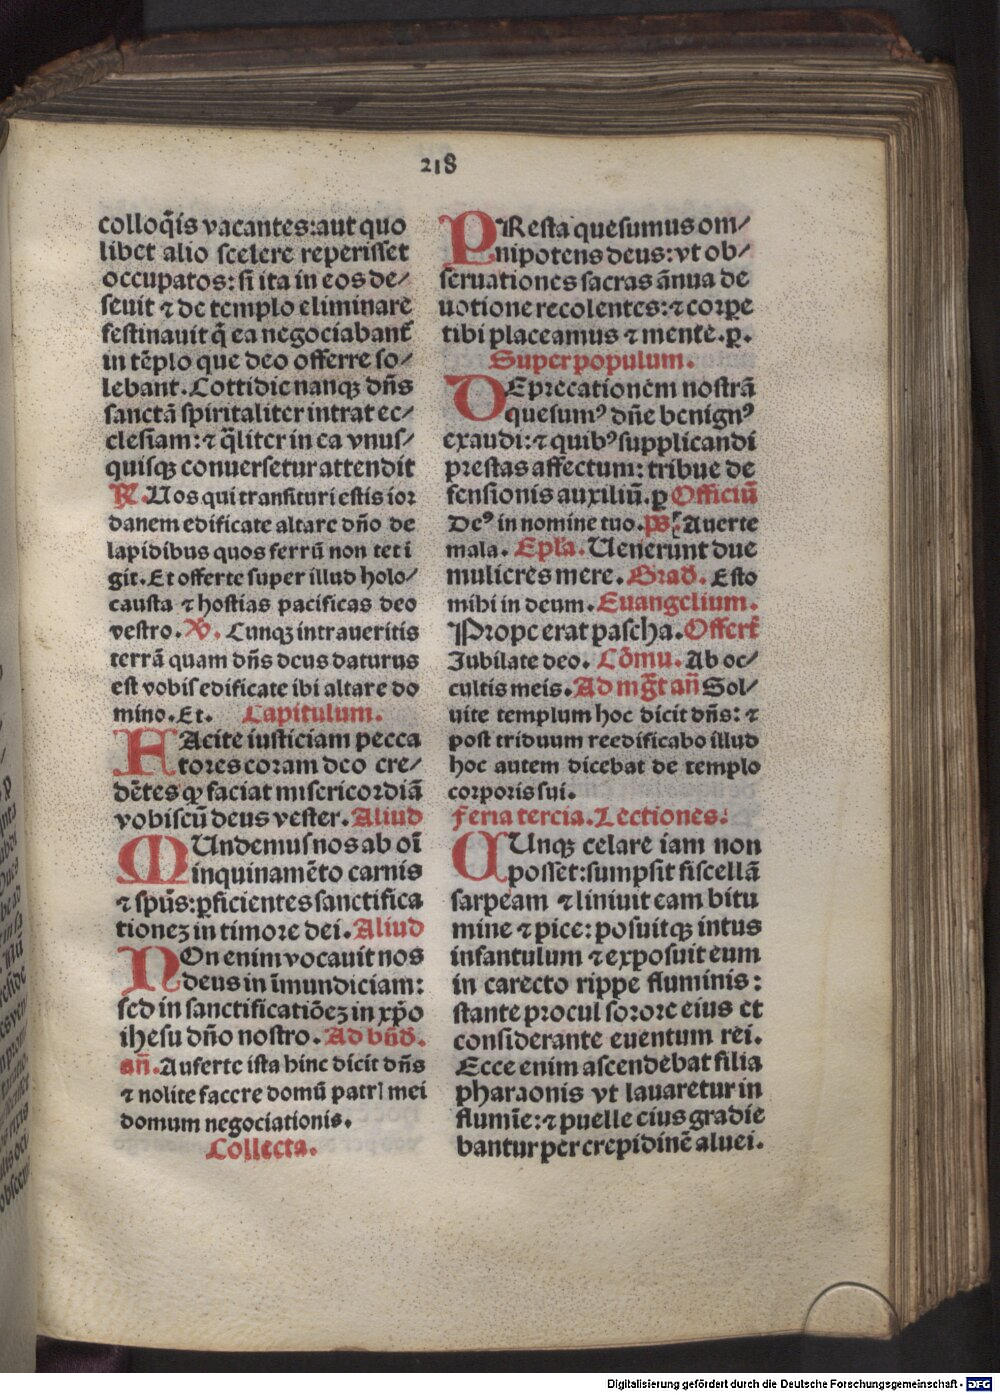 218
colloq̄is vacantes:aut quo
libet alio scelere reperisset
occupatos: si ita in eos de⸗
seuit ⁊ de templo eliminare
festinauit q̄ ea negociabant᷑
in tēplo que deo offerre so⸗
lebant. Cottidie nanqꝫ dn̄s
sanctā spiritaliter intrat ec⸗
clesiam: ⁊ q̄liter in ea vnus⸗
quisqꝫ conuersetur attendit
℟. Uos qui transituri estis ior
danem edificate altare dn̄o de
lapidibus quos ferrū non teti
git. Et offerte super illud holo⸗
causta ⁊ hostias pacificas deo
vestro. ℣. Cunqꝫ intraueritis
terrā quam dn̄s deus daturus
est vobis edificate ibi altare do
mino. Et. Capitulum.
FAcite iusticiam pecca
tores coram deo cre⸗
dētes ꝙ faciat misericordiā
vobiscū deus vester. Aliud
MUndemus nos ab oī
inquinamēto carnis
⁊ spūs: ꝑficientes sanctifica
tioneꝫ in timore dei. Aliud
NOn enim vocauit nos
deus in īmundiciam:
sed in sanctificatiōeꝫ in xp̄o
ihesu dn̄o nostro. Ad bn̄d̄.
an̄. Auferte ista hinc dicit dn̄s
⁊ nolite facere domū patri mei
domum negociationis.
Collecta.
PResta quesumus om⸗
nipotens deus: vt ob⸗
seruationes sacras ānua de
uotione recolentes: ⁊ corꝑe
tibi placeamus ⁊ mente. ꝑ.
Super populum.
DEprecationem nostrā
quesumꝰ dn̄e benignꝰ
exaudi: ⁊ quibꝰ supplicandi
prestas affectum: tribue de
fensionis auxiliū. ꝑ Officiū
Deꝰ in nomine tuo. Ps̄ Auerte
mala. Ep̄la. Uenerunt due
mulieres mere. Grad̄. Esto
mihi in deum. Euangelium.
Prope erat pascha. Offert᷑
Jubilate deo. Cōmu. Ab oc⸗
cultis meis. Ad mḡt an̄ Sol⸗
uite templum hoc dicit dn̄s: ⁊
post triduum reedificabo illud
hoc autem dicebat de templo
corporis sui.
Feria tercia. Lectiones.
CUnqꝫ celare iam non
posset: sumpsit fiscellā
sarpeam ⁊ liniuit eam bitu
mine ⁊ pice: posuitqꝫ intus
infantulum ⁊ exposuit eum
in carecto rippe fluminis:
stante procul sorore eius et
considerante euentum rei.
Ecce enim ascendebat filia
pharaonis vt lauaretur in
flumīe: ⁊ puelle eius gradie
bantur per crepidinē aluei.
Digitalisierung gefördert durch die Deutsche Forschungsgemeinschaft - DFG